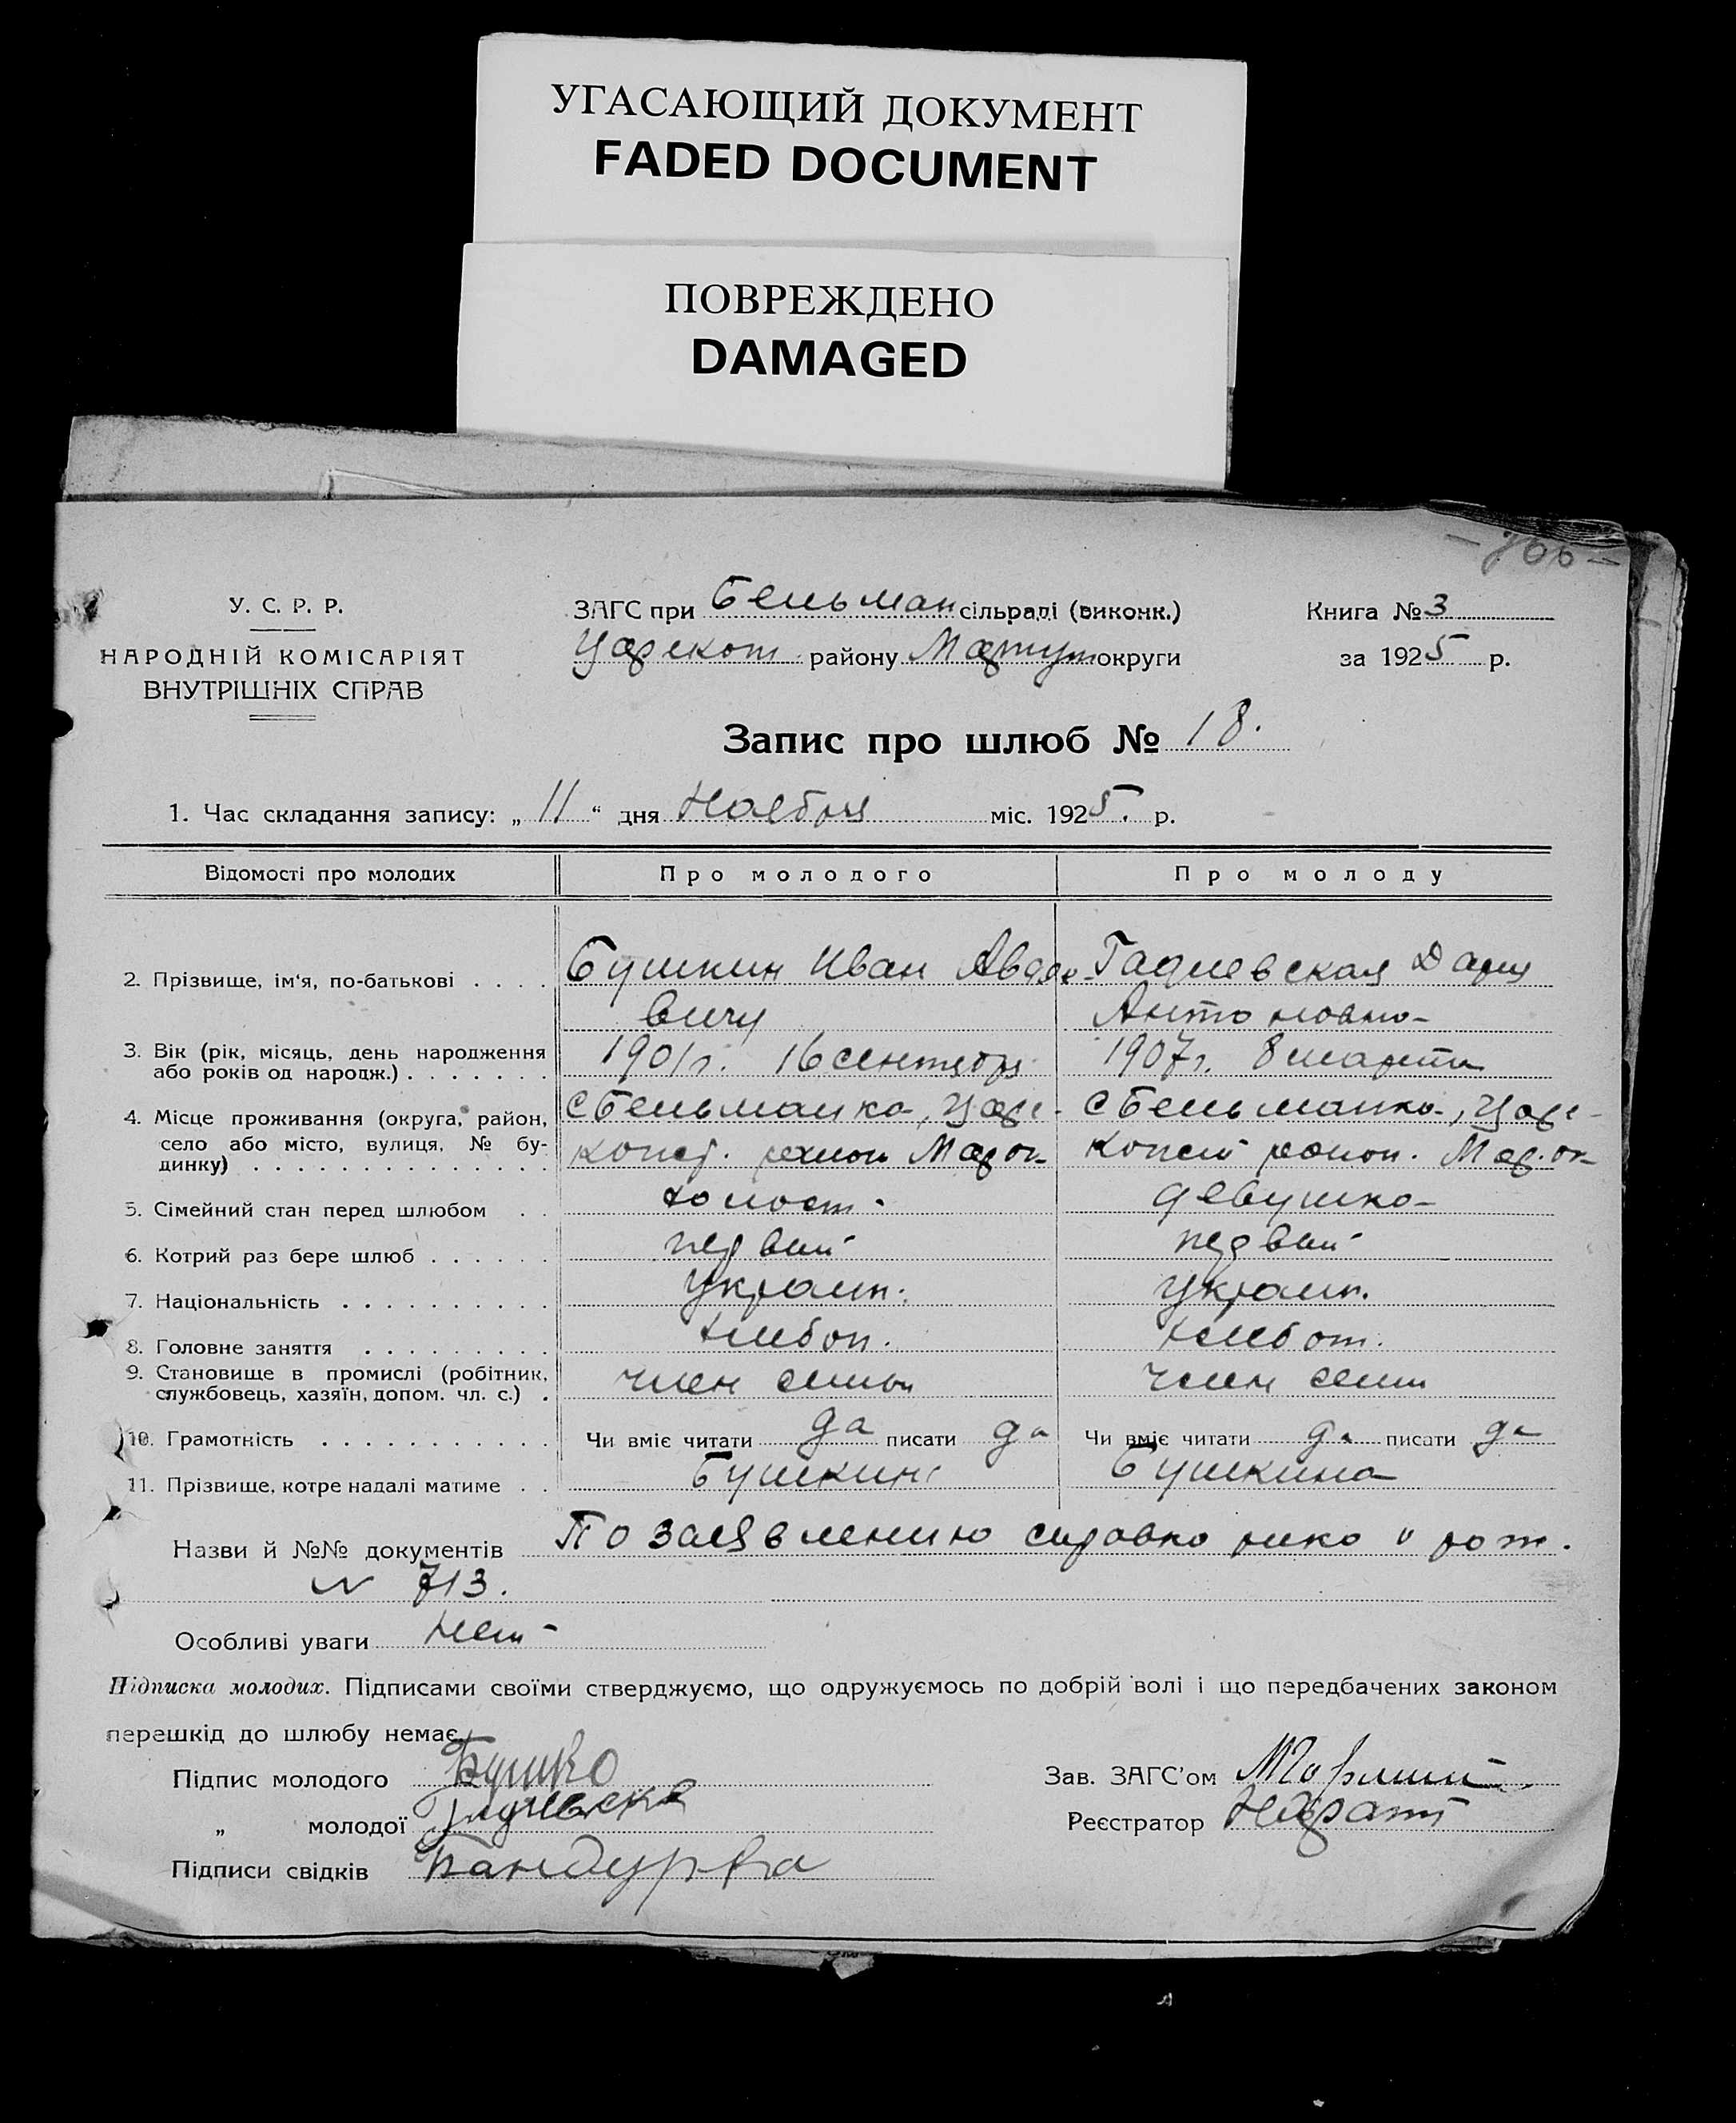 УГАСАЮЩИЙ ДОКУМЕНТ
FADED DOCUMENT
ПОВРЕЖДЕНО
DAMAGED
У. С. Р. Р.
НАРОДНІЙ КОМІСАРІЯТ
ВНУТРІШНІХ СПРАВ
ЗАГС при Бельман сільраді (виконк.)
Царекот району округи
Книга № 3
за 1925 р.
Запис про шлюб № 18.
1. Час складання запису: „ 11 “ дня Ноября міс. 1925. р.
Відомості про молодих Про молодого Про молоду
2. Прізвище, ім'я, по-батькові . . . . Бушкин Иван Авде- Гадиевская Дария
вичу Антоновна
3. Вік (рік, місяць, день народження
або років од народж.) . . . . . . . 1901г. 16 сентября 1907г. 8 марта
4. Місце проживання (округа, район, с Бельманка, Царе- с Бельманка, Царе-
село або місто, вулиця, № бу-
динку) . . . . . . . . . . . . . . район Мар ок район. Мар. ок
5. Сімейний стан перед шлюбом . . холост. девушка
6. Котрий раз бере шлюб . . . . . . первый первый
7. Національність . . . . . . . . . . украин. украин.
8. Головне заняття . . . . . . . . . хлебоп.
9. Становище в промислі (робітник,
службовець, хазяїн, допом. чл. с.) . член семьи член семи
10. Грамотність . . . . . . . . . . . Чи вміє читати да писати да Чи вміє читати да писати да
11. Прізвище, котре надалі матиме . . Бушкин Бушкина
Назви й №№ документів По заявлению справка рика о рож.
N 713.
Особливі уваги нет
Підписка молодих. Підписами своїми стверджуємо, що одружуємось по добрій волі і що передбачених законом
перешкід до шлюбу немає.
Підпис молодого Бушко
„ молодої
Підписи свідків
Зав. ЗАГС'ом
Реєстратор